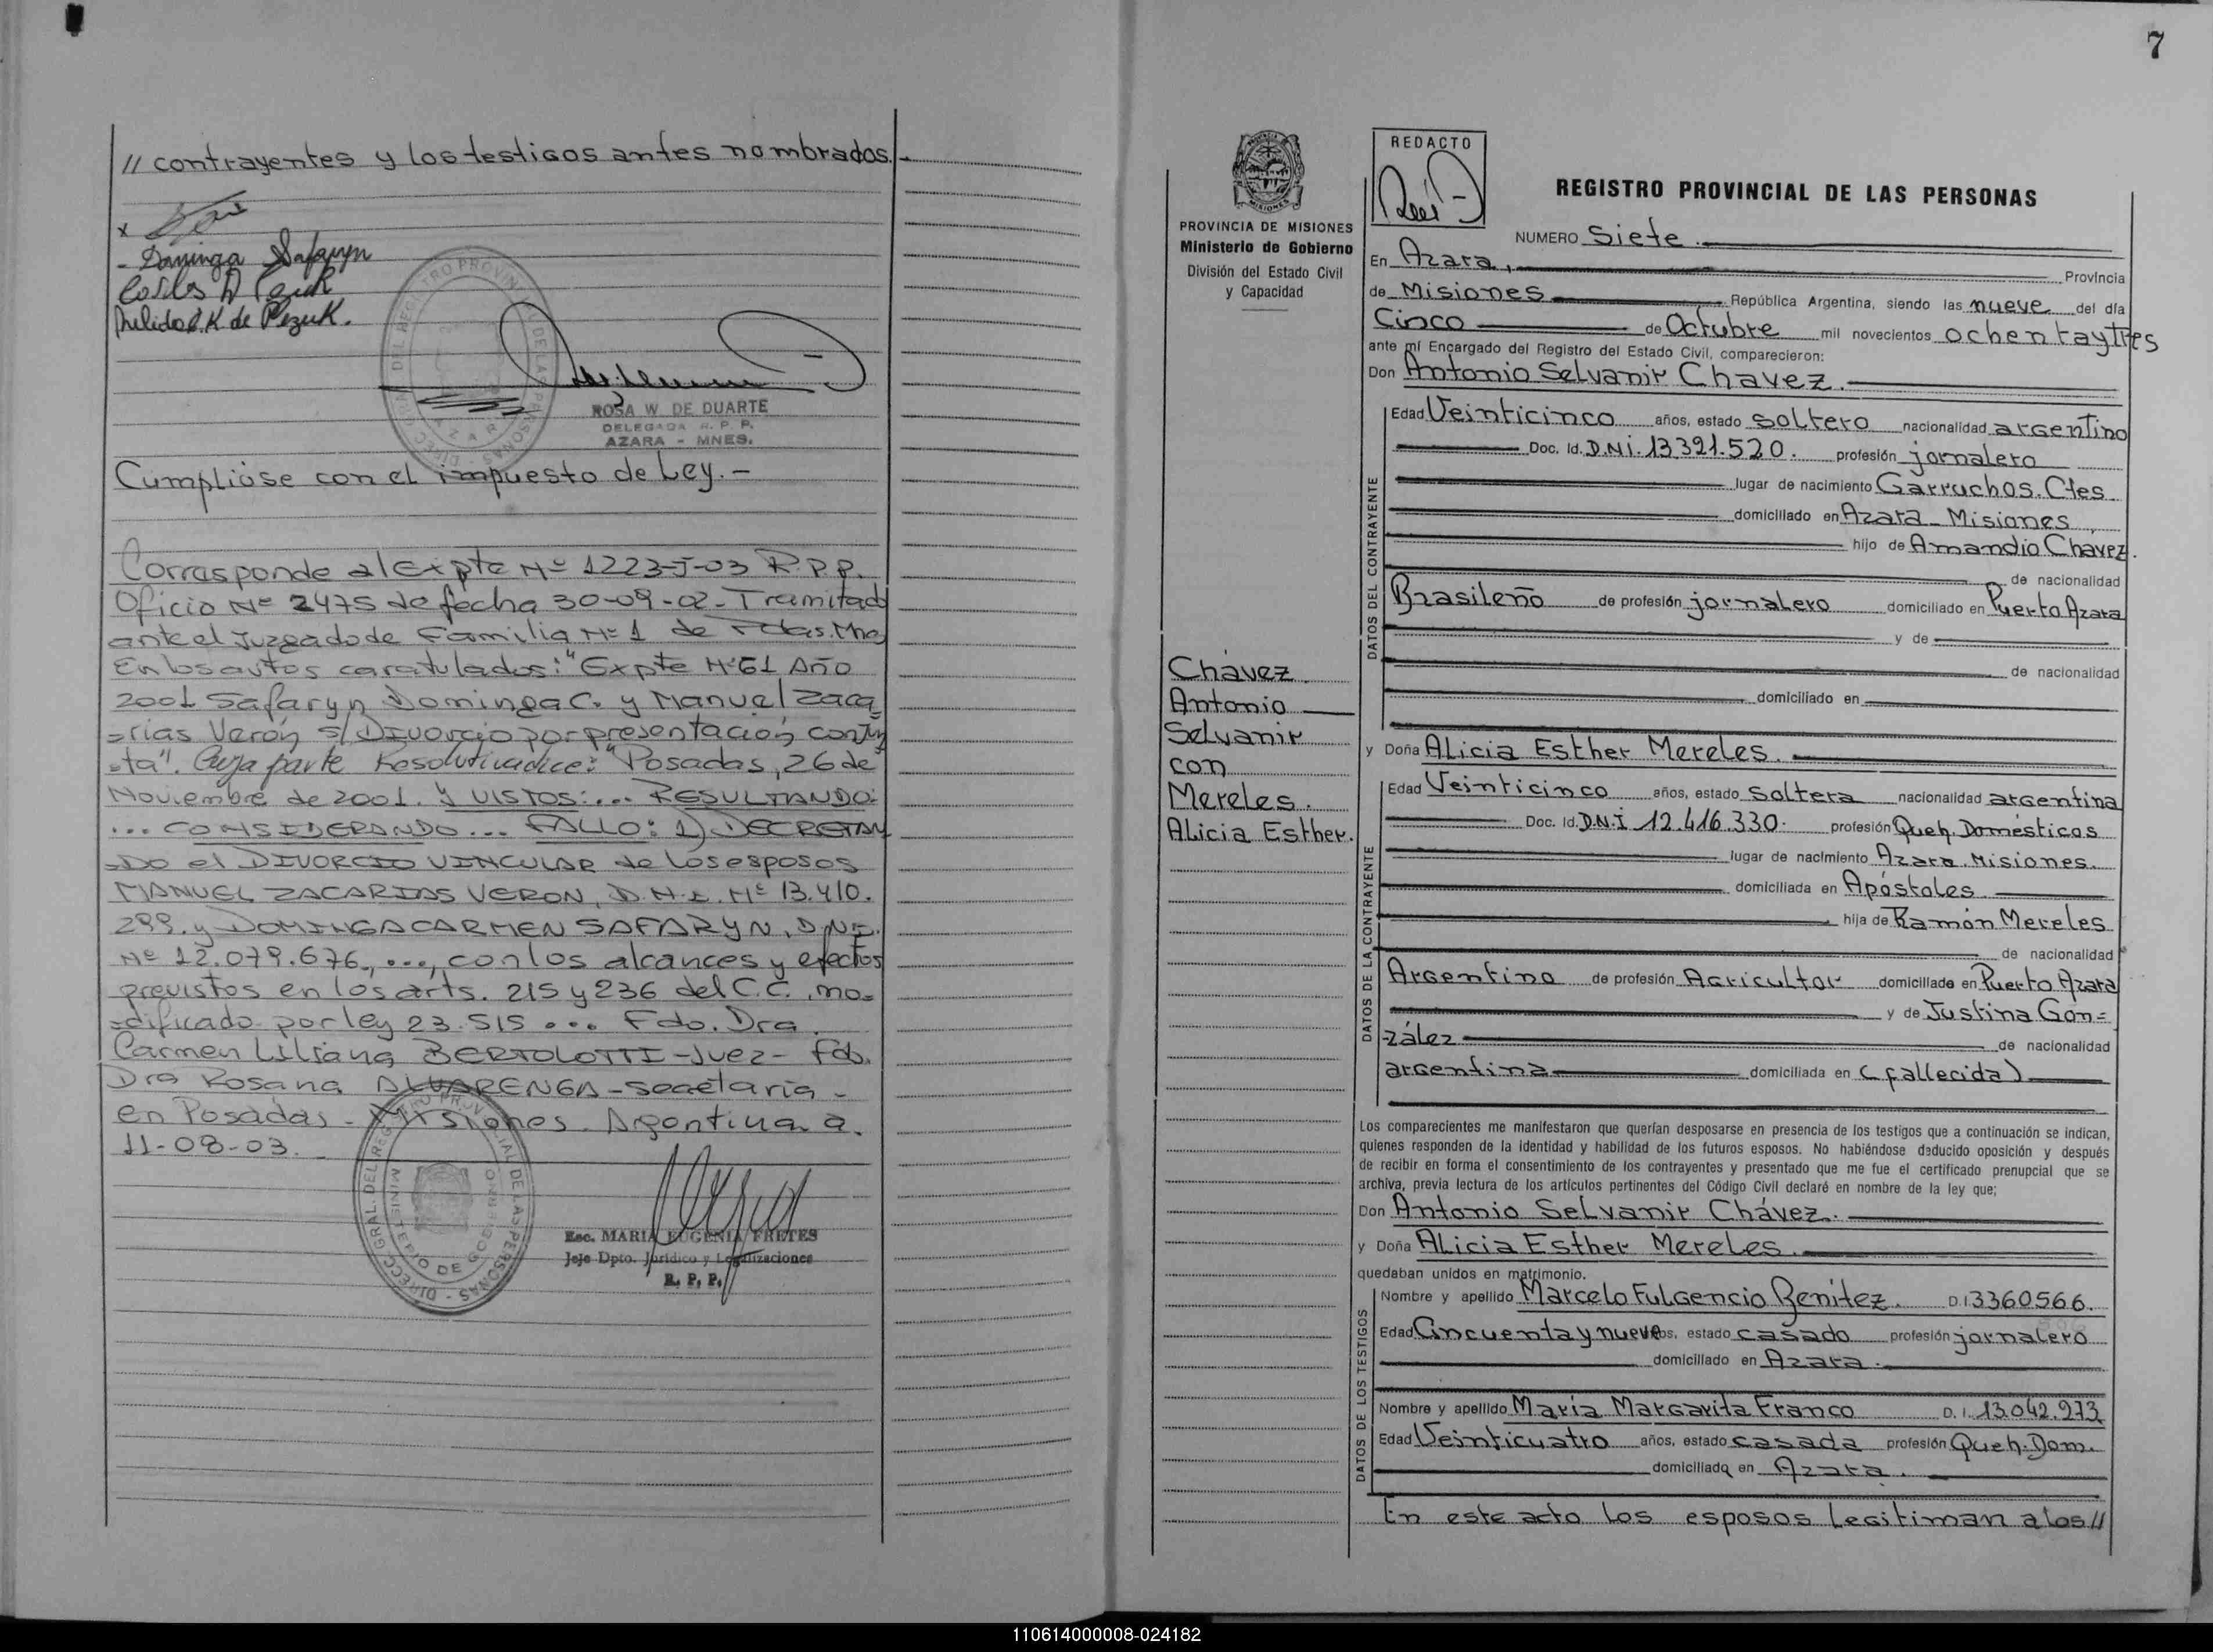 // contrayentes y los testigos antes nombrados.-
x
- Dominga Safaryn
Carlos A Pezuk
Melida E. K de Pezuk.
ROSA W. DE DUARTE
DELEGADA R. P. P.
AZARA - MNES.
Cumplióse con el impuesto de Ley.-
Corresponde al Expte Nº 1223-J-03 R.P.P.
Oficio Nº 2475 de fecha 30-09-02 - Tramitado
ante el Juzgado de Familia Nº 1 de Pdas. Mnes
En los autos caratulados: "Expte Nº 61 Año
2001 Safaryn Dominga C. y Manuel Zaca
=rias Verón s/ Divorcio por presentación conjun
=ta". Cuya parte Resolutiva dice: "Posadas, 26 de
Noviembre de 2001. Y VISTOS:... RESULTANDO:
... CONSIDERANDO... FALLO: 1) DECRETAN
=DO el DIVORCIO VINCULAR de los esposos
MANUEL ZACARIAS VERON, D.N.I. Nº 13.410.
299. y DOMINGA CARMEN SAFARYN, D.N.I.
Nº 12.079.676., ..., con los alcances y efectos
previstos en los arts. 215 y 236 del C.C. mo=
=dificado por ley 23.515 ... Fdo. Dra.
Carmen Liliana BERTOLOTTI - Juez - Fdo.
Dra Rosana ALVARENGA - secretaria -
en Posadas - Misiones - Argentina a.
11-08-03.
Esc. MARIA EUGENIA FRETES
Jefe Dpto. Jurídico y Legalizaciones
R. P. P.
7
PROVINCIA DE MISIONES
Ministerio de Gobierno
División del Estado Civil
y Capacidad
Chávez
Antonio
Selvanir
con
Mereles.
Alicia Esther.
REDACTO
REGISTRO PROVINCIAL DE LAS PERSONAS
NUMERO Siete.
En Azara, Provincia
de Misiones República Argentina, siendo las nueve del día
Cinco de Octubre mil novecientos ochenta y tres
ante mí Encargado del Registro del Estado Civil, comparecieron:
Don Antonio Selvanir Chavez.
DATOS DEL CONTRAYENTE
Edad Veinticinco años, estado soltero nacionalidad argentino
Doc. Id. D.N.I. 13.391.520. profesión jornalero
lugar de nacimiento Garruchos. Ctes
domiciliado en Azara - Misiones
hijo de Amandio Chávez.
de nacionalidad
Brasileño de profesión jornalero domiciliado en Puerto Azara
y de
de nacionalidad
domiciliado en
y Doña Alicia Esther Mereles.
DATOS DE LA CONTRAYENTE
Edad Veinticinco años, estado soltera nacionalidad argentina
Doc. Id. D.N.I 12.416.330. profesión Queh. Domésticos
lugar de nacimiento Azara. Misiones.
domiciliada en Apóstoles
hija de Ramón Mereles
de nacionalidad
Argentino de profesión Agricultor domiciliado en Puerto Azara
y de Justina Gon=
zález de nacionalidad
argentina domiciliada en (fallecida)
Los comparecientes me manifestaron que querían desposarse en presencia de los testigos que a continuación se indican,
quienes responden de la identidad y habilidad de los futuros esposos. No habiéndose deducido oposición y después
de recibir en forma el consentimiento de los contrayentes y presentado que me fue el certificado prenupcial que se
archiva, previa lectura de los artículos pertinentes del Código Civil declaré en nombre de la ley que;
Don Antonio Selvanir Chávez.
y Doña Alicia Esther Mereles.
quedaban unidos en matrimonio.
DATOS DE LOS TESTIGOS
Nombre y apellido Marcelo Fulgencio Benítez. D.I 3360566.
Edad Cincuenta y nueve años, estado casado profesión jornalero
domiciliado en Azara.
Nombre y apellido María Margarita Franco D. I. 13.042.973
Edad Veinticuatro años, estado casada profesión Queh. Dom.
domiciliada en Azara.
En este acto los esposos legitiman a los //
110614000008-024182